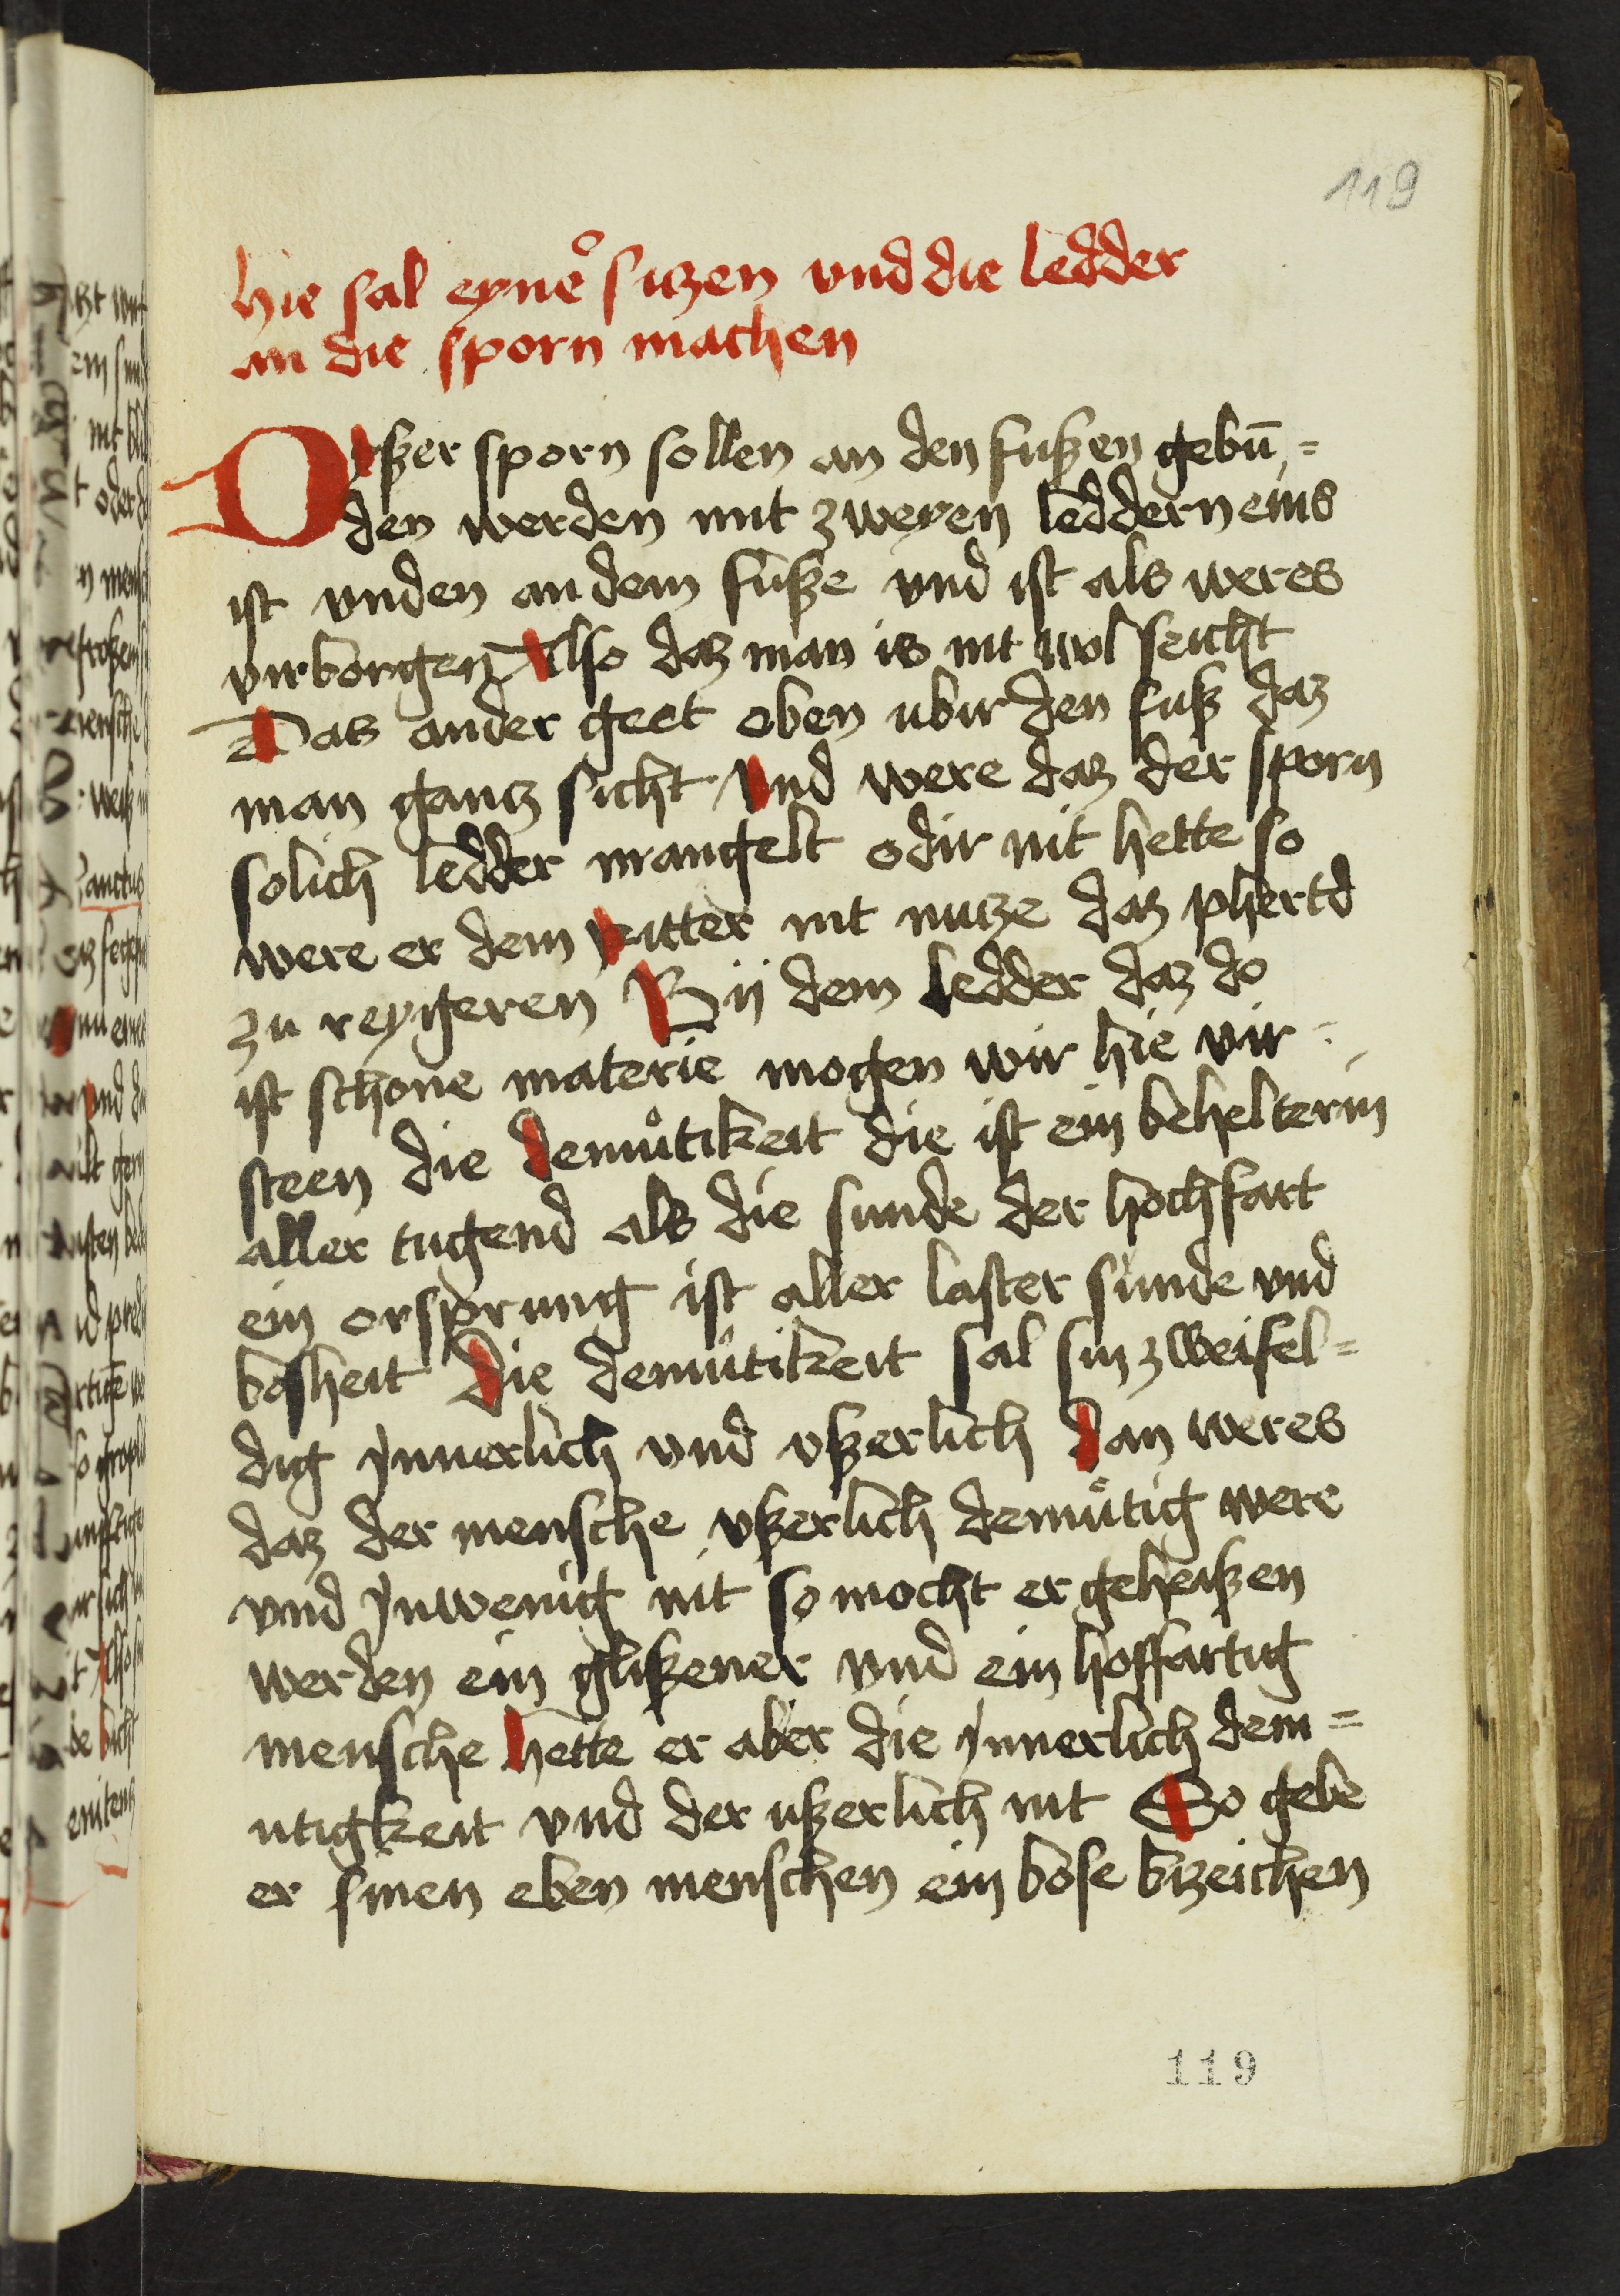 119
hie sal eyneͦ sitzen vnd die ledder
an die sporn machen
Dißer sporn sollen an den fußen gebū=
den werden mit zweyen leddern eins
ist vnden an dem fuße vnd ist als weres
virborgen Also daz man is nit wol seicht
Das ander geet oben ubir den fuß daz
man gantz sicht Vnd were daz der sporn
solich ledder mangelt odir nit hette so
were er dem ritter nit nutze daz phertd
zu reygeren Bij dem ledder daz do
ist schone materie mogen wir hie vir=
steen die demuͦtikeit die ist ein behelterin
aller tugend als die sunde der hochfart
ein orsprung ist aller laster sunde vnd
bosheit Die demuͦtikeit sal sin zweifel=
dig Jnnerlich vnd vßerlich Dan weres
daz der mensche vßerlich demuͦtig were
vnd Jnwenig nit so mocht er geheißen
werden ein glißener vnd ein hoffartig
mensche hette er aber die Jnnerlich dem=
utigkeit vnd der ußerlich nit So gebe
er sinen eben menschen ein bose bzeichen
119